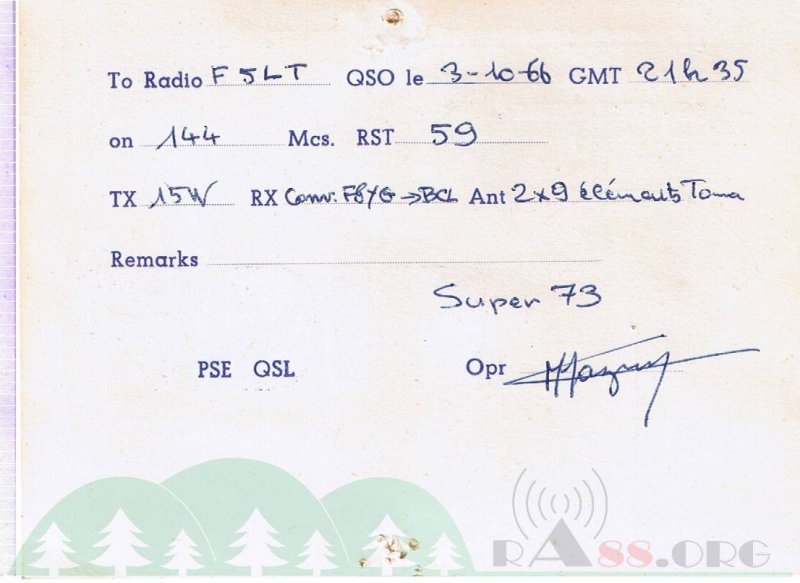 To Radio F 5LT QSO le 3-10-66 GMT 21h35
on 144 Mcs. RST 59
TX 15W RX Conv. F8YG → BCL Ant 2x9 éléments Tona
Remarks
Super 73
PSE QSL Opr
RA88.ORG